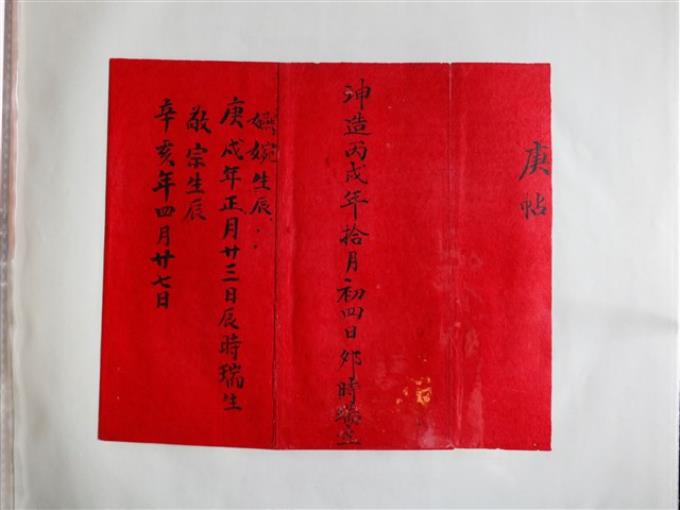 庚帖
坤造丙戌年拾月初四日卯時瑞生
婉生辰：
庚戌年正月廿三日辰時瑞生
敬宗生辰
辛亥年四月廿七日